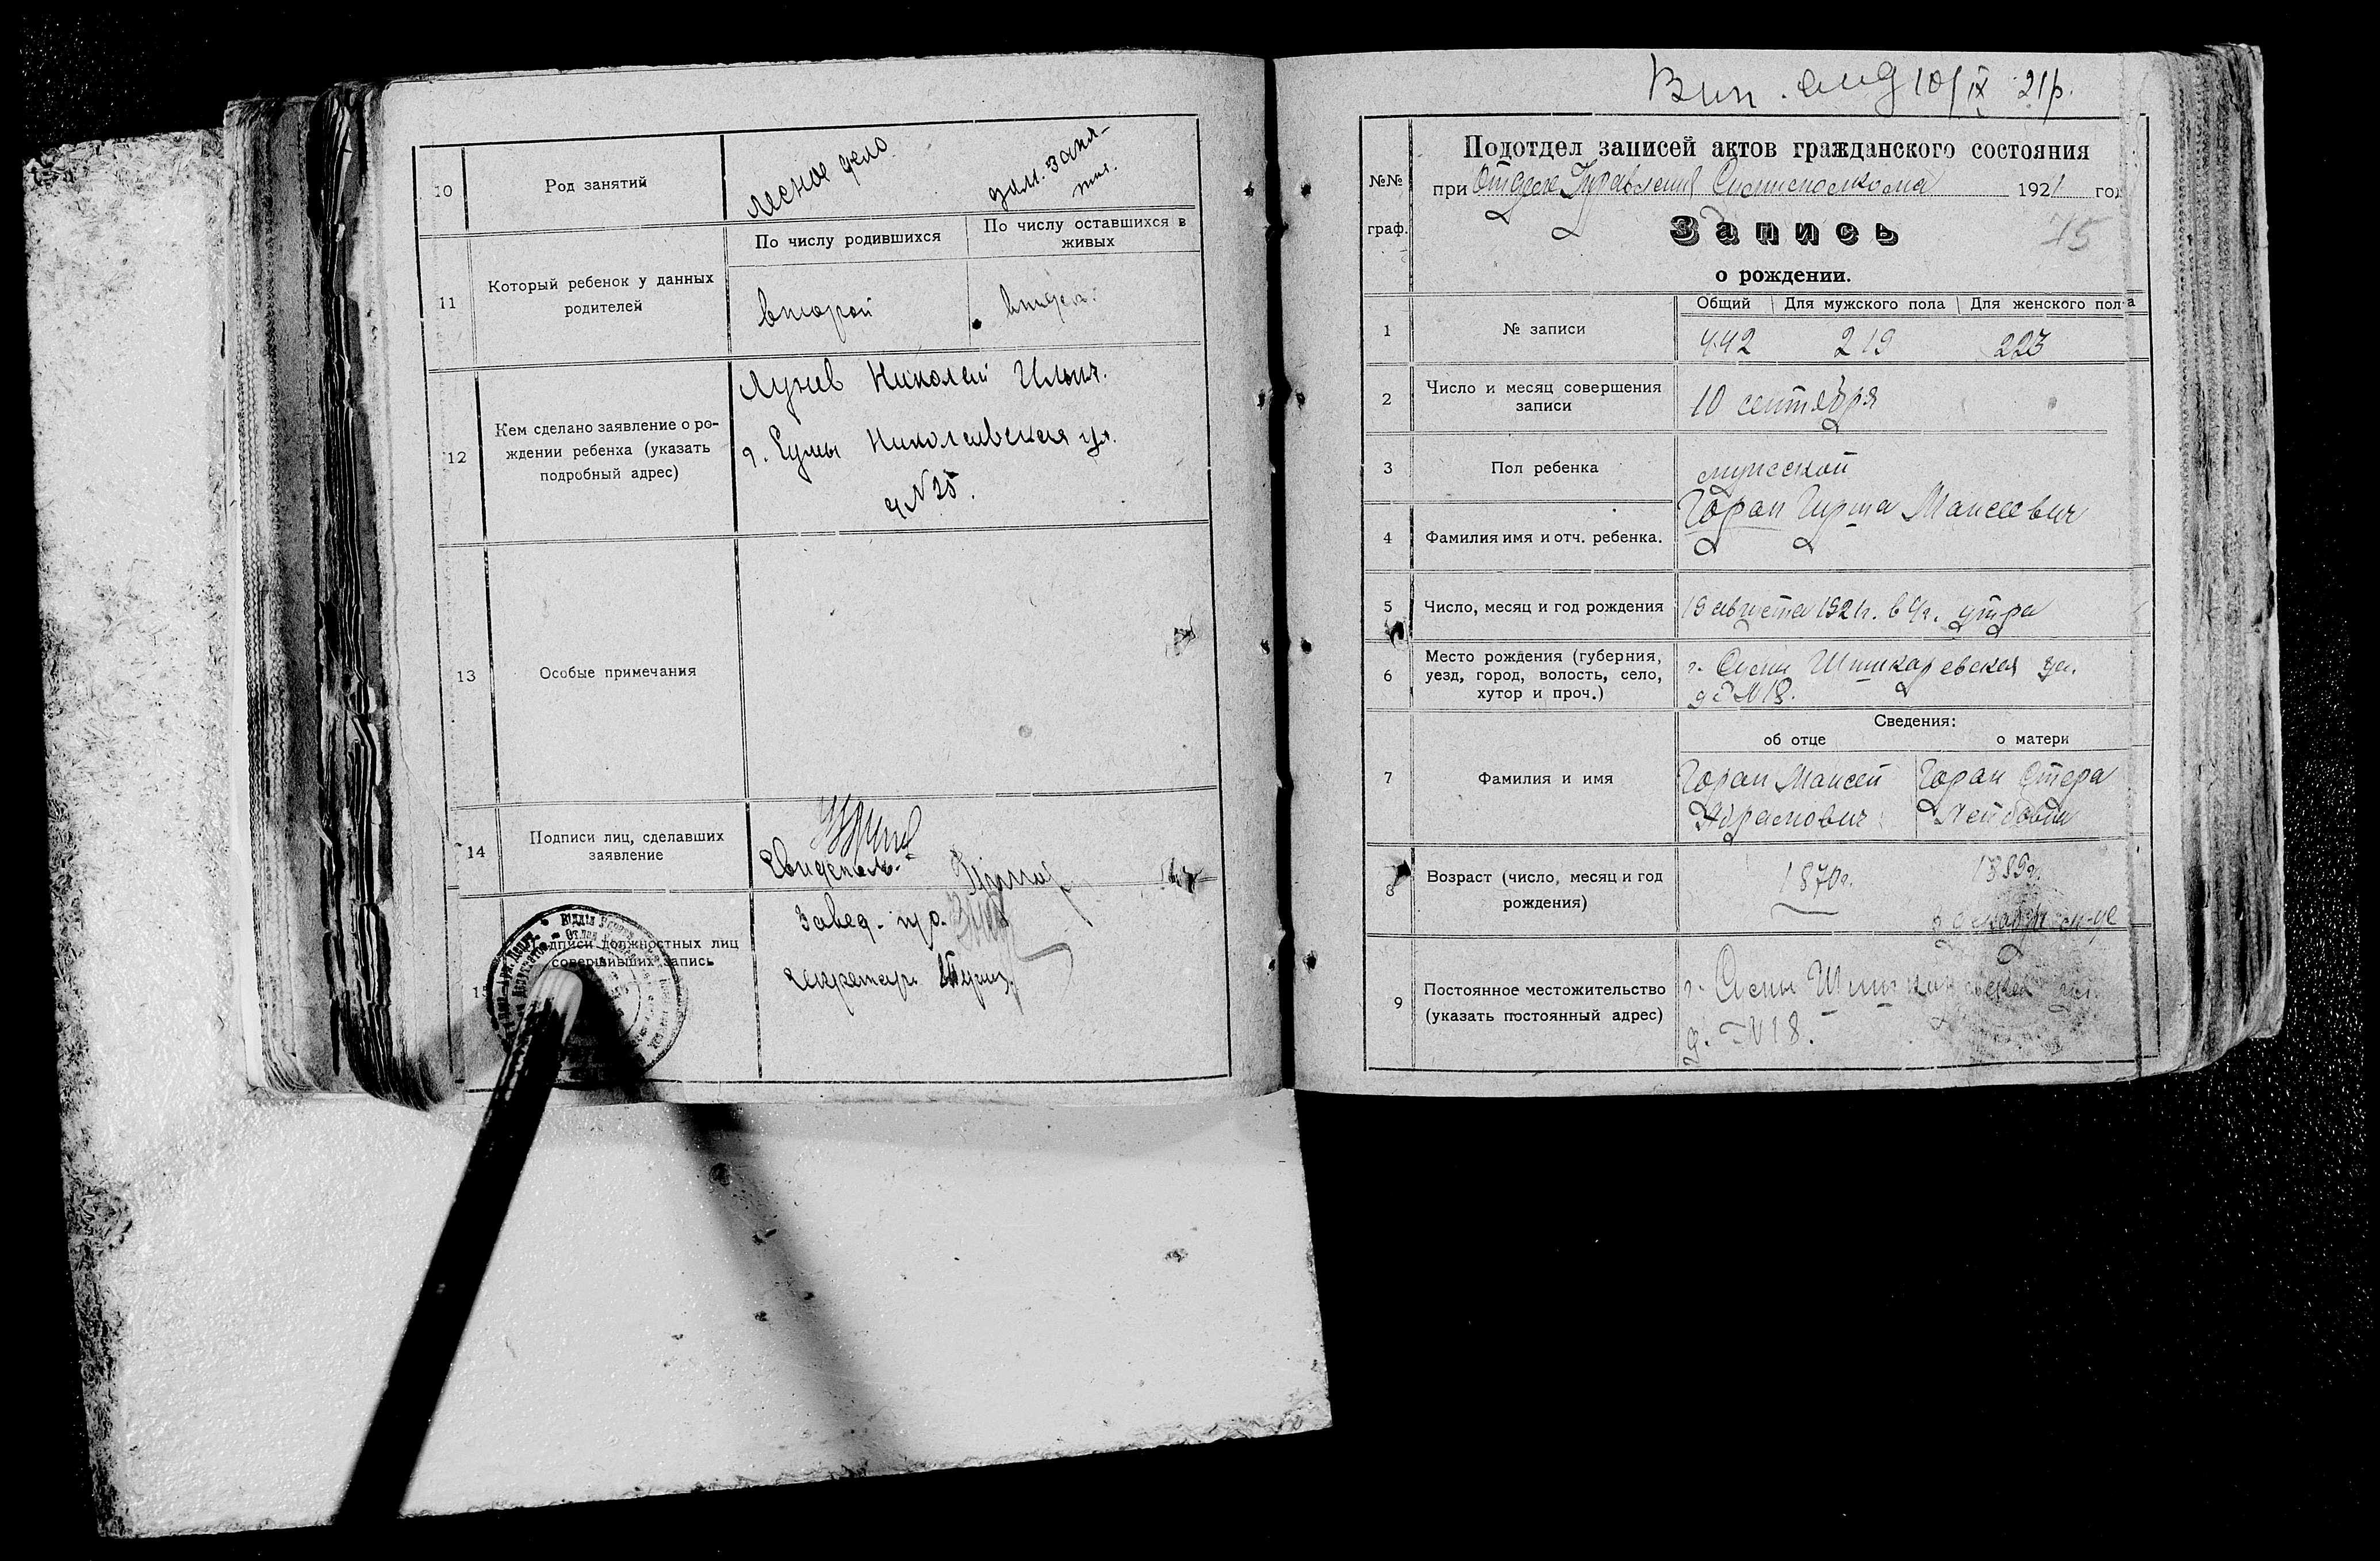 10
Род занятий
лесное дело
дом. заня-
тия.
11
Который ребенок у данных
родителей
По числу родившихся
По числу оставшихся в
живых
второй
второй
12
Кем сделано заявление о ро-
ждении ребенка (указать
подробный адрес)
Лунев Николай Ильич.
г. Сумы Николаевская ул.
д№25.
13
Особые примечания
14
Подписи лиц, сделавших
заявление
Свидетель.
15
Подписи должностных лиц
совершивших запись
Завед. п/о.
Секретарь
Вип. від 10/IX 21р.
№№
граф.
Подотдел записей актов гражданского состояния
при Отделе Управления 1921 год
Запись
75
о рождении.
Общий Для мужского пола Для женского пола
1
№ записи
442 219 223
2
Число и месяц совершения
записи
10 сентября
3
Пол ребенка
мужской
4
Фамилия имя и отч. ребенка.
Горан Гирша Моисеевич
5
Число, месяц и год рождения
19 августа 1921г. в 9ч. утра
6
Место рождения (губерния,
уезд, город, волость, село,
хутор и проч.)
г. Сумы Шишкаревская ул.
д №18.
Сведения:
об отце о матери
7
Фамилия и имя
Горан Моисей
Абрамович
Горан Стера
Лейбовна
8
Возраст (число, месяц и год
рождения)
1870г.
1889г.
9
Постоянное местожительство
(указать постоянный адрес)
г. Сумы Шишкаревская ул.
д. №18.